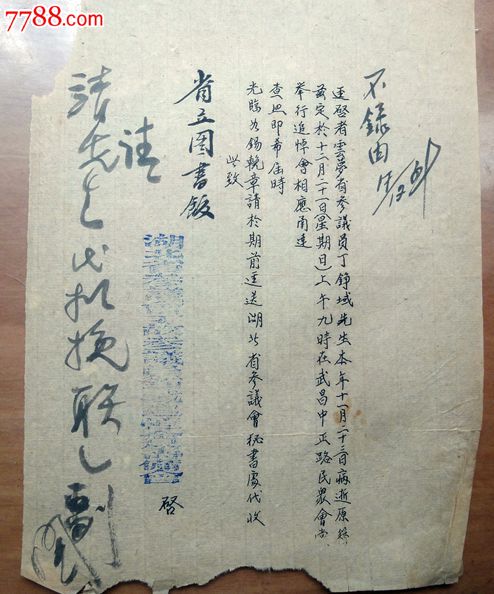 7788.com
不錄由
逕啓者雲夢有參議員丁錚域先生本年十月二十三日病逝原縣
茲定於十二月二十一日(星期日)上午九時在武昌中正路民眾會堂
舉行追悼會相應函達
查照即希届時
光臨如錫輓章請於期前逕送湖北省參議會秘書處代收
此致
省立圖書館
啓
請
先生代擬挽聯
劉